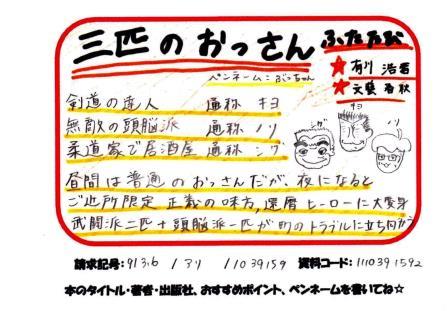 三匹のおっさん ふたたび
★有川 浩著
★文藝春秋
ペンネーム：ぶっちゃん
剣道の達人 通称 キヨ
無敵の頭脳派 通称 ノリ
柔道家で居酒屋 通称 シゲ
キヨ
シゲ
ノリ
昼間は普通のおっさんだが、夜になると
ご近所限定 正義の味方,還暦ヒーローに大変身
武闘派二匹＋頭脳派一匹が町のトラブルに立ち向かう
請求記号：913.6 / アリ / 110391592 資料コード：1110391592
本のタイトル・著者・出版社、おすすめポイント、ペンネームを書いてね☆